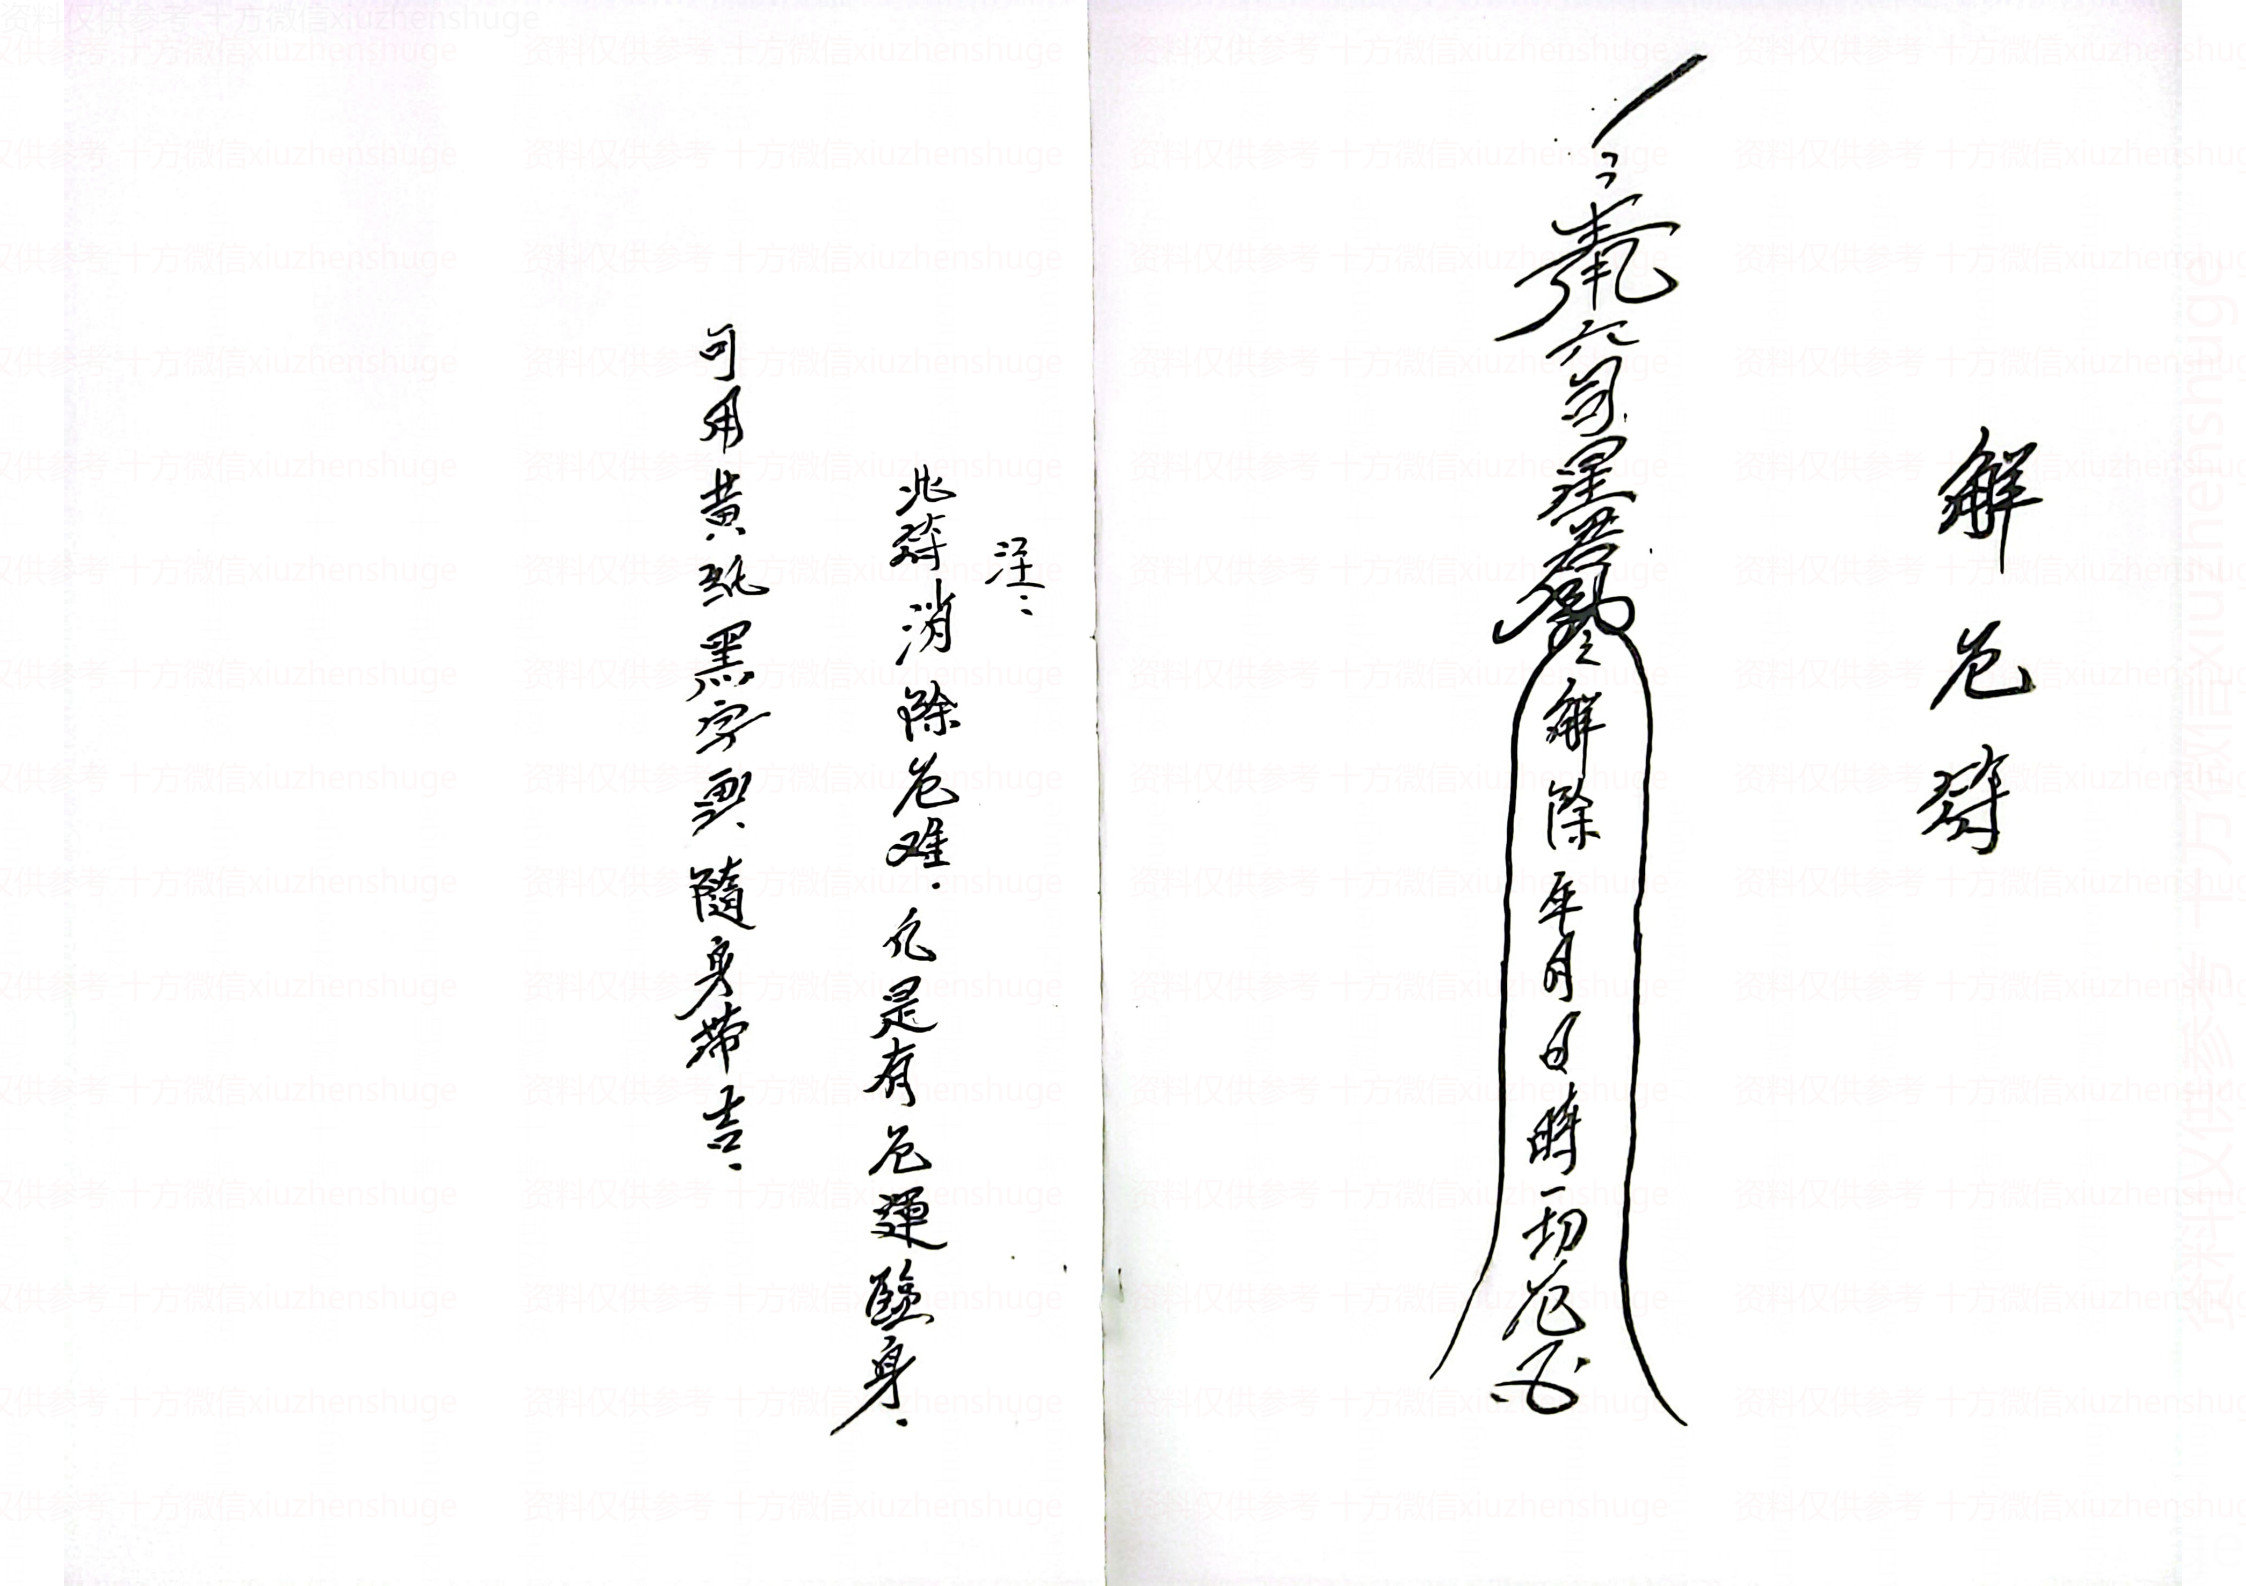 解危符
奉
六司星君
解除年月日時一切危
注:
此符消除危难.凡是有危運臨身.
可用黄纸黑字画.隨身带吉.
资料仅供参考 十方微信xiuzhenshuge